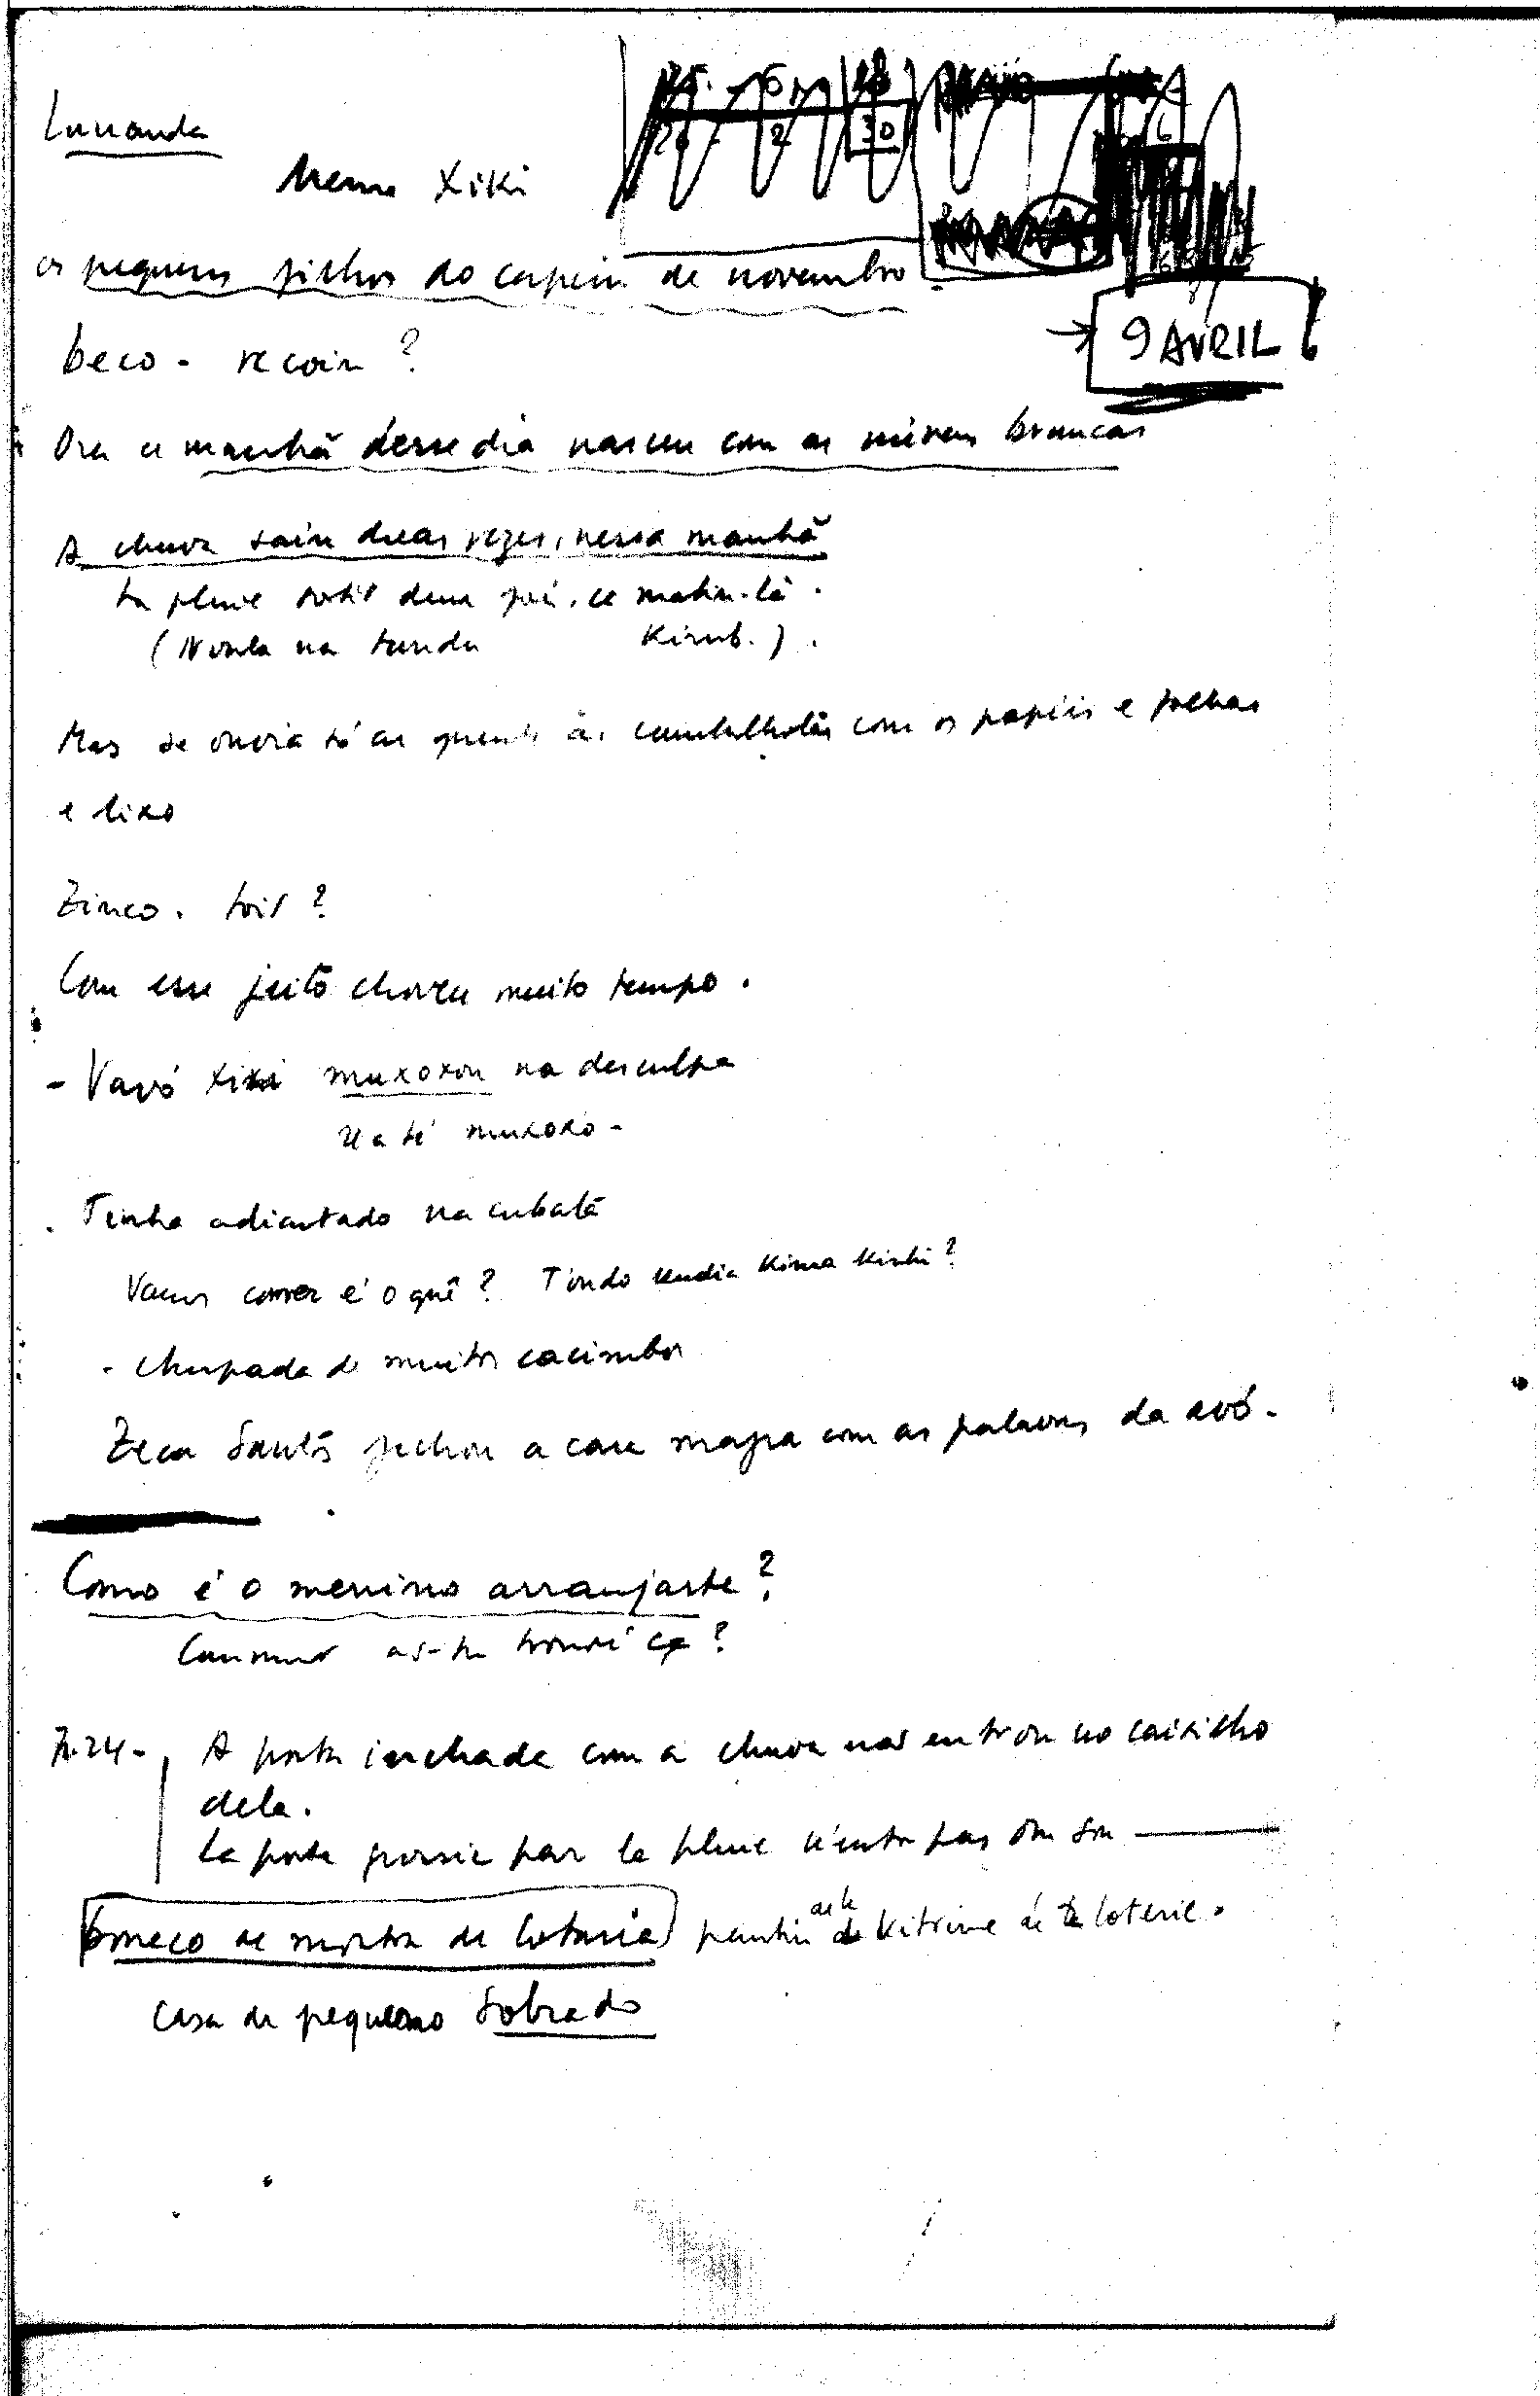 Luuanda
Mema Xiki
os pequenos filhos do capim de novembro.
→ 9 AVRIL
beco - recoin ?
Ora a manhã desse dia nasceu com as núvens brancas
A chuva saiu duas vezes, nessa manhã
La pluie sortit deux fois, ce matin-là.
(Nvula na tunda Kimb.).
Mas se ouvia só as às cambalhotas com os papéis e folhas
e lixo
Zinco. toit ?
Com esse jeito choveu muito tempo.
- Vavó Xixi muxoxou na desculpa
muxoxo -
. Tinha adiantado na cubata
Vamos comer é o quê ? Tondo kudia kima kiebi ?
- chupada de muitos cacimbos
Zeca Santos fechou a cara magra com as palavras da avó.
Como é o menino arranjaste ?
Comment as-tu trouvé ça ?
P.24 - A porta inchada com a chuva não entrou no caixilho
dela.
La porte grossie par la pluie n'entra pas son
boneco de montra de lotaria pantin de vitrine de loterie.
casa de pequeno Sobrado